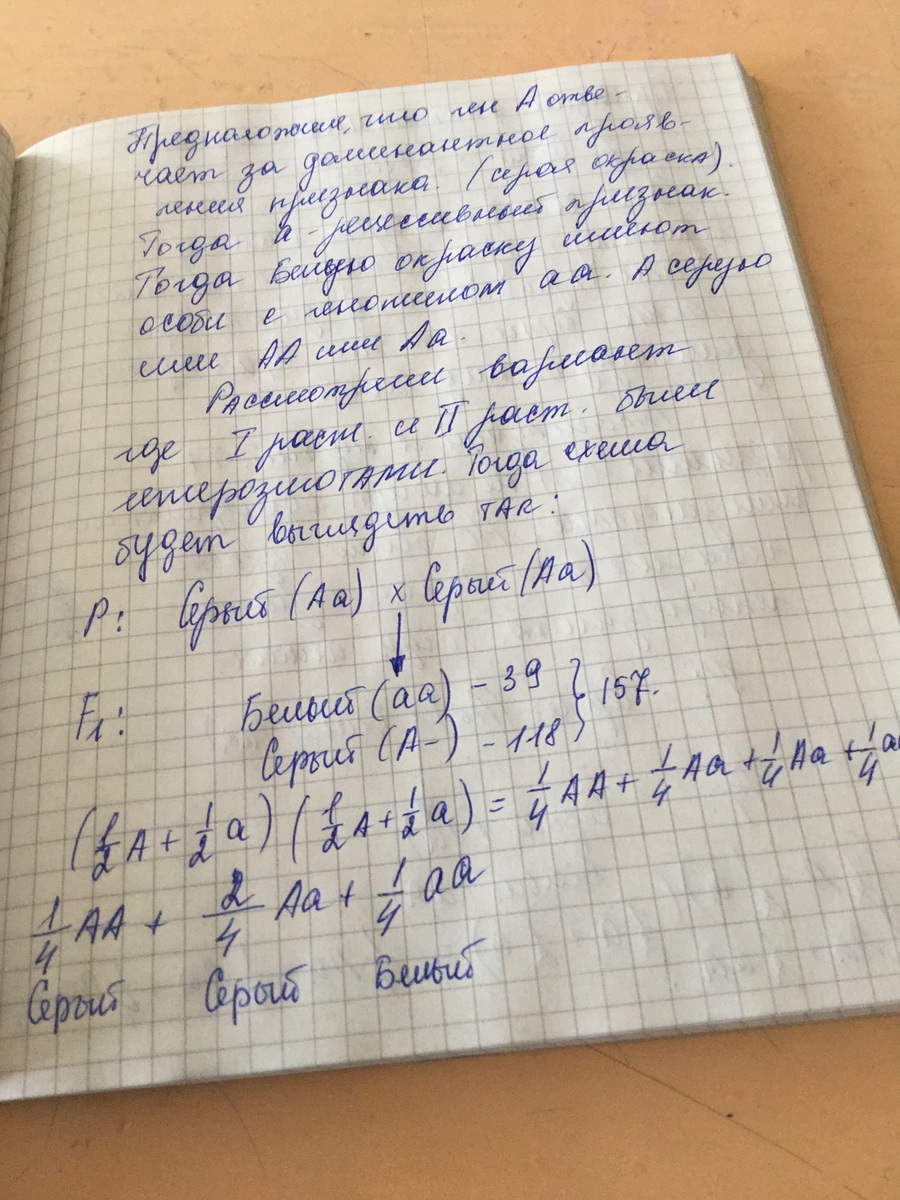 Предположим, что ген A отве-
чает за доминантное прояв-
ления признака. (серая окраска).
Тогда a - рецессивный признак.
Тогда Белую окраску имеют
особи с генотипом aa. А серую
или AA или Aa.
Рассмотрим вариант
где I раст. и II раст. были
гетерозиготами. Тогда схема
будет выглядить так:
P: Серый (Aa) x Серый (Aa)
F₁: Белый (aa) - 39
Серый (A-) - 118 } 157.
(1/2 A + 1/2 a) (1/2 A + 1/2 a) = 1/4 AA + 1/4 Aa + 1/4 Aa + 1/4 aa
1/4 AA + 2/4 Aa + 1/4 aa
Серый Серый Белый